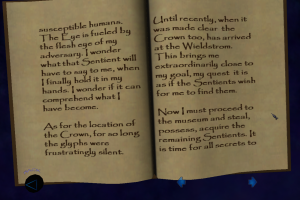 susceptible humans.
The Eye is fueled by
the flesh eye of my
adversary. I wonder
what that Sentient will
have to say to me, when
I finally hold it in my
hands. I wonder if it can
comprehend what I
have become.
As for the location of
the Crown, for so long
the glyphs were
frustratingly silent.
Until recently, when it
was made clear the
Crown too, has arrived
at the Wieldstrom.
This brings me
extraordinarily close to
my goal, my quest. it is
as if the Sentients wish
for me to find them.
Now I must proceed to
the museum and steal,
possess, acquire the
remaining Sentients. It
is time for all secrets to